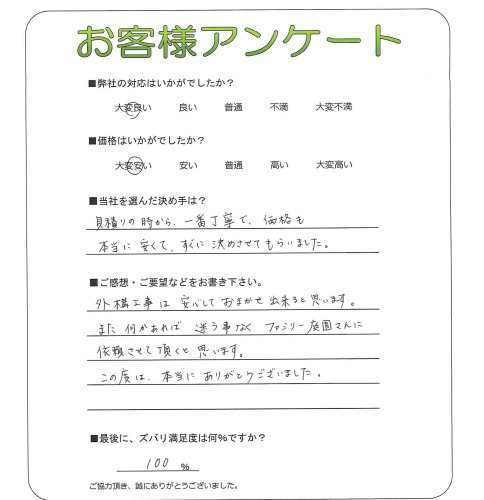 お客様アンケート
■弊社の対応はいかがでしたか?
大変良い 良い 普通 不満 大変不満
■価格はいかがでしたか?
大変安い 安い 普通 高い 大変高い
■当社を選んだ決め手は?
見積りの時から、一番丁寧で、価格も
本当に安くて、すぐに決めさせてもらいました。
■ご感想・ご要望などをお書き下さい。
外構工事は安心しておまかせ出来ると思います。
また何かあれば迷う事なくファミリー庭園さんに
依頼させて頂くと思います。
この度は、本当にありがとうございました。
■最後に、ズバリ満足度は何%ですか?
100 %
ご協力頂き、誠にありがとうございました。